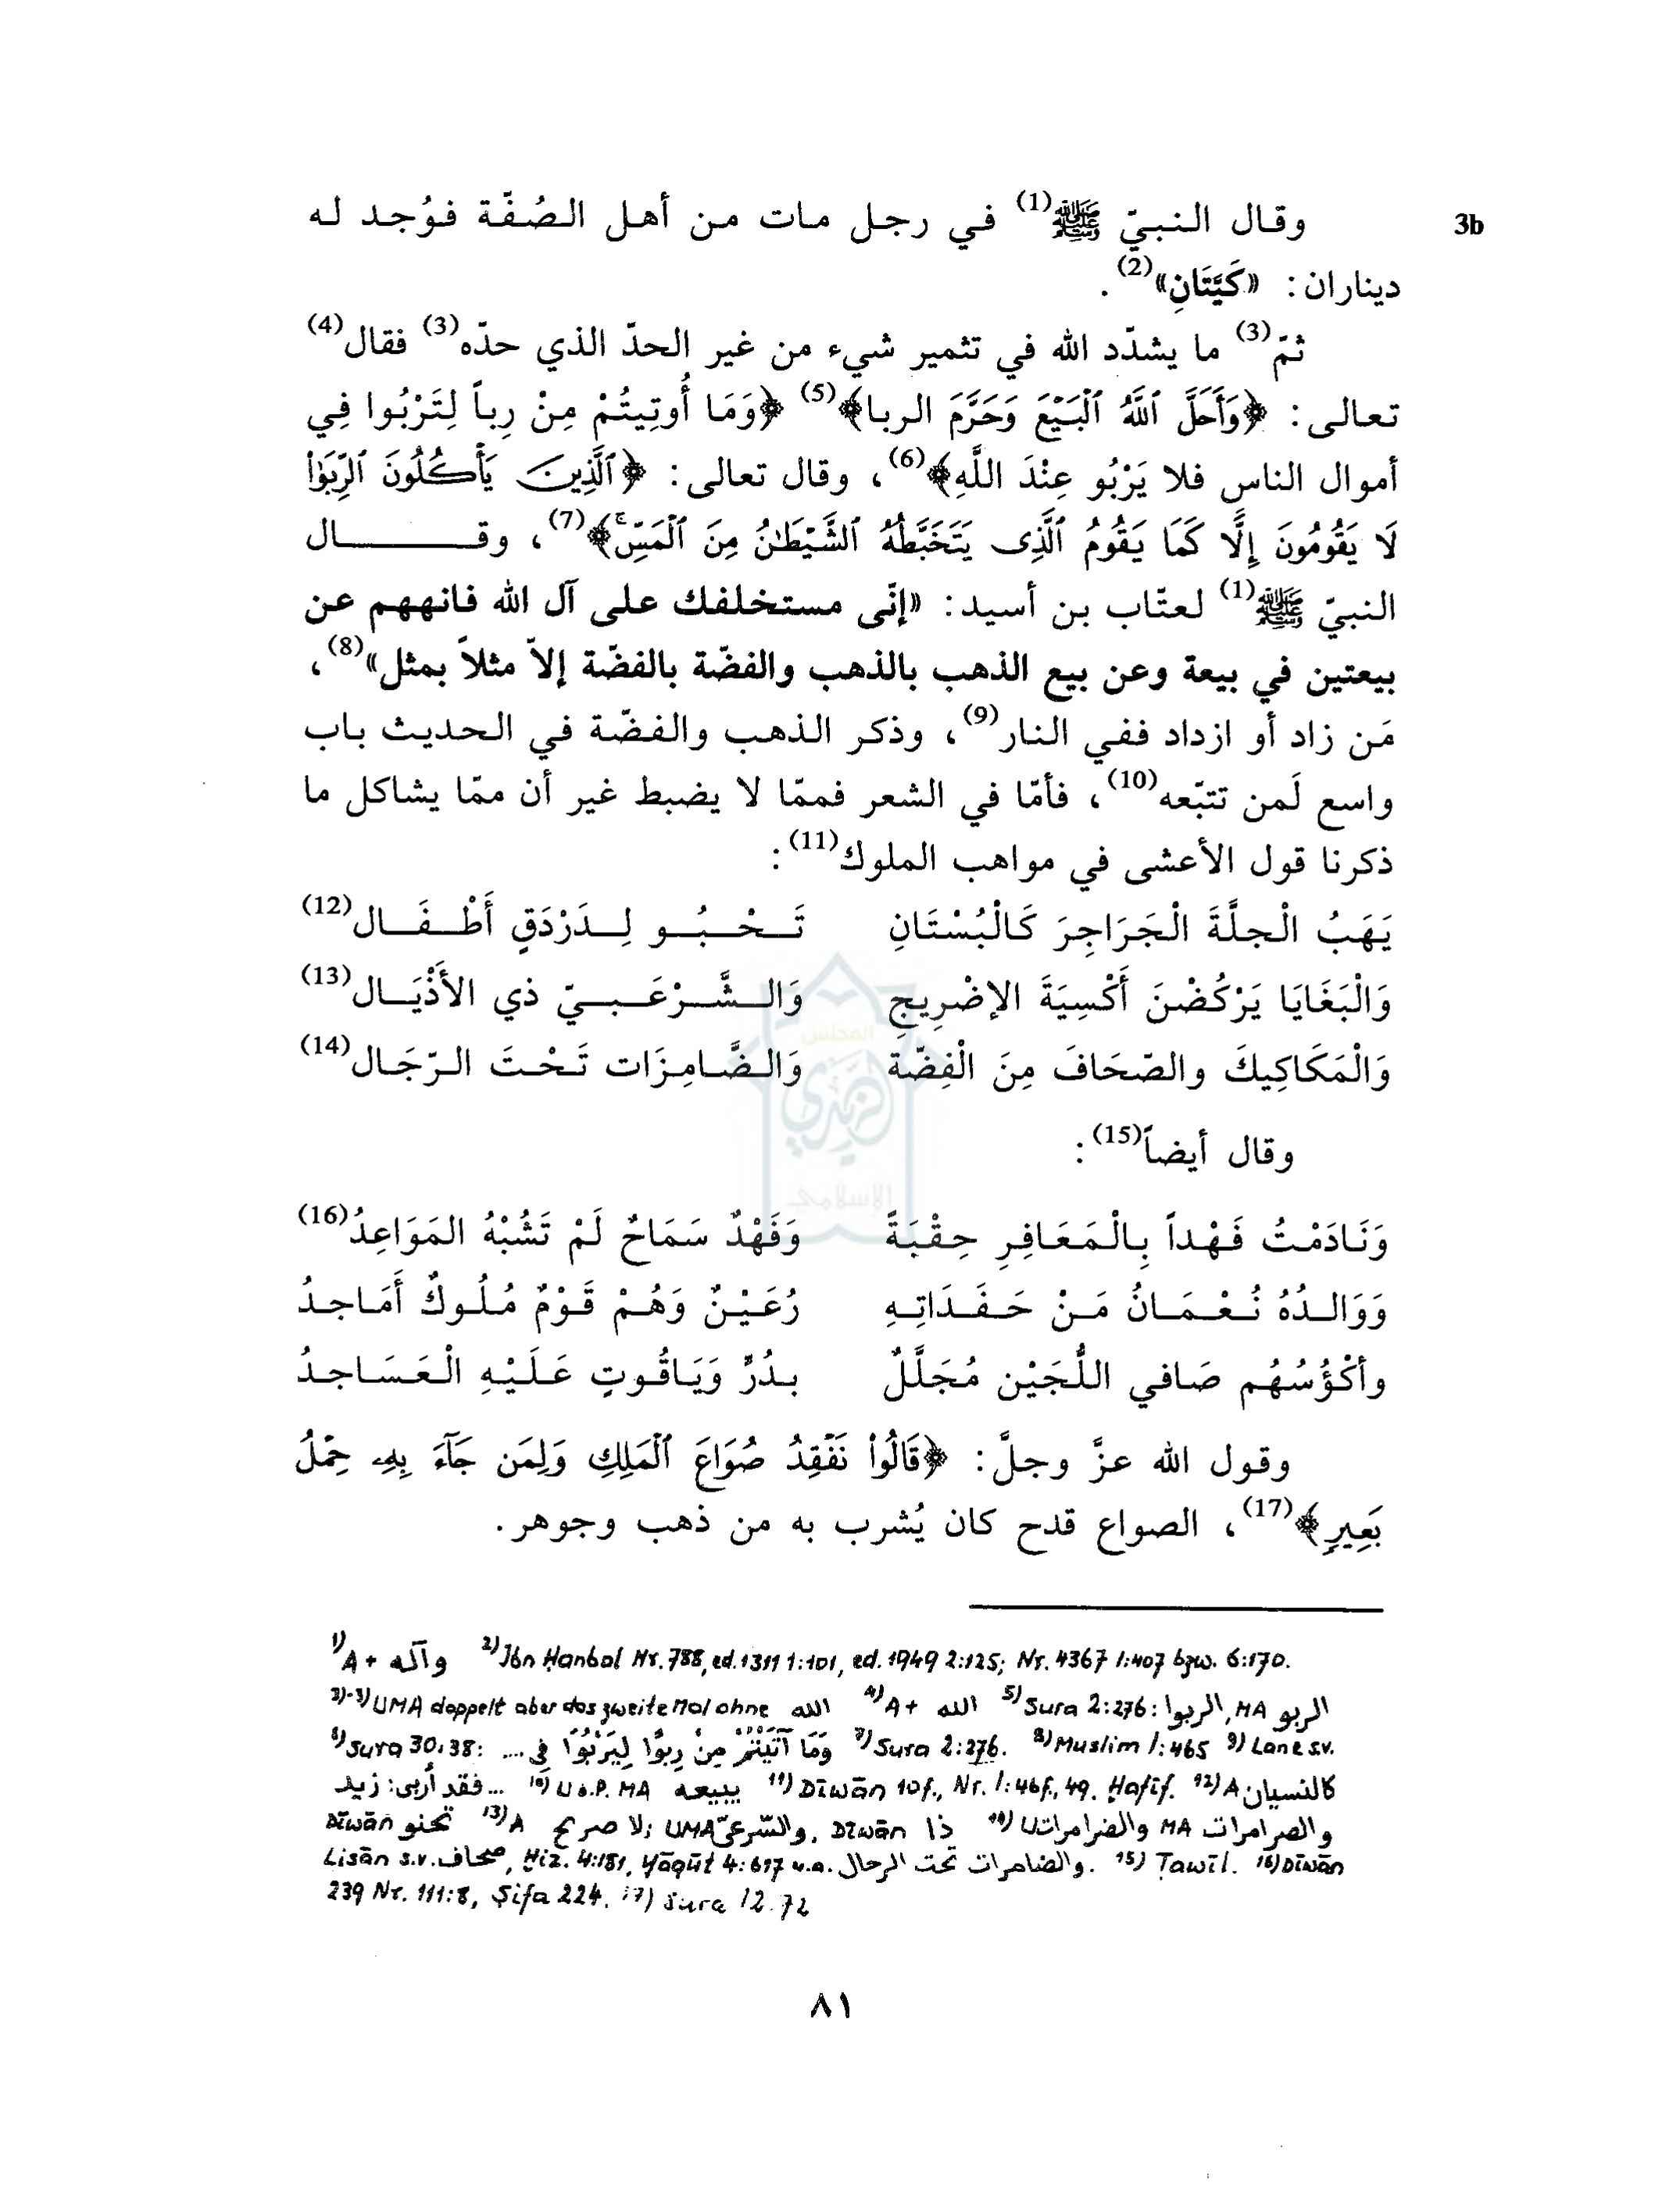 3b
وقال النبيّ ﷺ(1) في رجل مات من أهل الصُفّة فوُجد له
ديناران: «كَيَّتَانِ»(2).
ثمّ(3) ما يشدّد الله في تثمير شيء من غير الحدّ الذي حدّه(3) فقال(4)
تعالى: ﴿وَأَحَلَّ ٱللَّهُ ٱلْبَيْعَ وَحَرَّمَ الربا﴾(5) ﴿وَمَا أُوتِيتُمْ مِنْ رِباً لِتَرْبُوا فِي
أموال الناسِ فلا يَرْبُو عِنْدَ اللَّهِ﴾(6)، وقال تعالى: ﴿ٱلَّذِينَ يَأْكُلُونَ ٱلرِّبَوٰا
لَا يَقُومُونَ إِلَّا كَمَا يَقُومُ ٱلَّذِى يَتَخَبَّطُهُ ٱلشَّيْطَٰنُ مِنَ ٱلْمَسِّۚ﴾(7)، وقال
النبيّ ﷺ(1) لعتّاب بن أسيد: «إنّى مستخلفك على آل الله فانههم عن
بيعتين في بيعة وعن بيع الذهب بالذهب والفضّة بالفضّة إلاّ مثلاً بمثل»(8)،
مَن زاد أو ازداد ففي النار(9)، وذكر الذهب والفضّة في الحديث باب
واسع لَمن تتبّعه(10)، فأمّا في الشعر فممّا لا يضبط غير أن ممّا يشاكل ما
ذكرنا قول الأعشى في مواهب الملوك(11):
يَهَبُ الْجلَّةَ الْجَرَاجِرَ كَالْبُسْتَانِ تَحْبُو لِدَرْدَقٍ أَطْفَال(12)
وَالْبَغَايَا يَرْكُضْنَ أَكْسِيَةَ الإضْرِيجِ وَالشَّرْعَبيّ ذي الأَذْيَال(13)
وَالْمَكَاكِيكَ والصّحَافَ مِنَ الْفِضّة وَالضَّامِزَات تَحْتَ الرّجَال(14)
وقال أيضاً(15):
وَنَادَمْتُ فَهْداً بِالْمَعَافِرِ حِقْبَةً وَفَهْدٌ سَمَاحٌ لَمْ تَشُبْهُ المَوَاعِدُ(16)
وَوَالدُهُ نُعْمَانُ مَنْ حَفَدَاتِهِ رُعَيْنٌ وَهُمْ قَوْمٌ مُلُوكٌ أَمَاجدُ
وأكْؤُسُهُم صَافي اللُّجَيْن مُجَلَّلٌ بدُرٍّ وَيَاقُوتٍ عَلَيْهِ الْعَسَاجدُ
وقول الله عزَّ وجلَّ: ﴿قَالُواْ نَفْقِدُ صُوَاعَ ٱلْمَلِكِ وَلِمَن جَآءَ بِهِۦ حِمْلُ
بَعِيرٍ﴾(17)، الصواع قدح كان يُشرب به من ذهب وجوهر.
1) A + وآله 2) Ibn Ḥanbal Nr. 788, ed. 1311 1:101, ed. 1949 2:125; Nr. 4367 1:407 bzw. 6:170.
3)-3) UMA doppelt aber das zweite Mal ohne الله 4) A + الله 5) Sura 2:276: الربوا, MA الربو
6) Sura 30:38: وَمَا آتَيْتُمْ مِنْ رِبوًا لِيَرْبُوَا فِى .... 7) Sura 2:276. 8) Muslim 1:465 9) Lane s.v.
... فقد أربى: زيد 10) U o.P. MA يبيعه 11) Dīwān 10f., Nr. 1:46f., 49. Ḫafīf. 12) A كالنسيان
Dīwān تحنو 13) A لا صريح; UMA والسّرعىّ, Dīwān ذا 14) U والضرامرات MA والصرامرات
Lisān s.v. صحاف, Ḫiz. 4:181, Yāqūt 4:617 u.a. والضامرات تحت الرحال. 15) Ṭawīl. 16) Dīwān
239 Nr. 111:8, Ṣifa 224. 17) Sura 12.72
٨١
المجلس
الهندي
الإسلامي